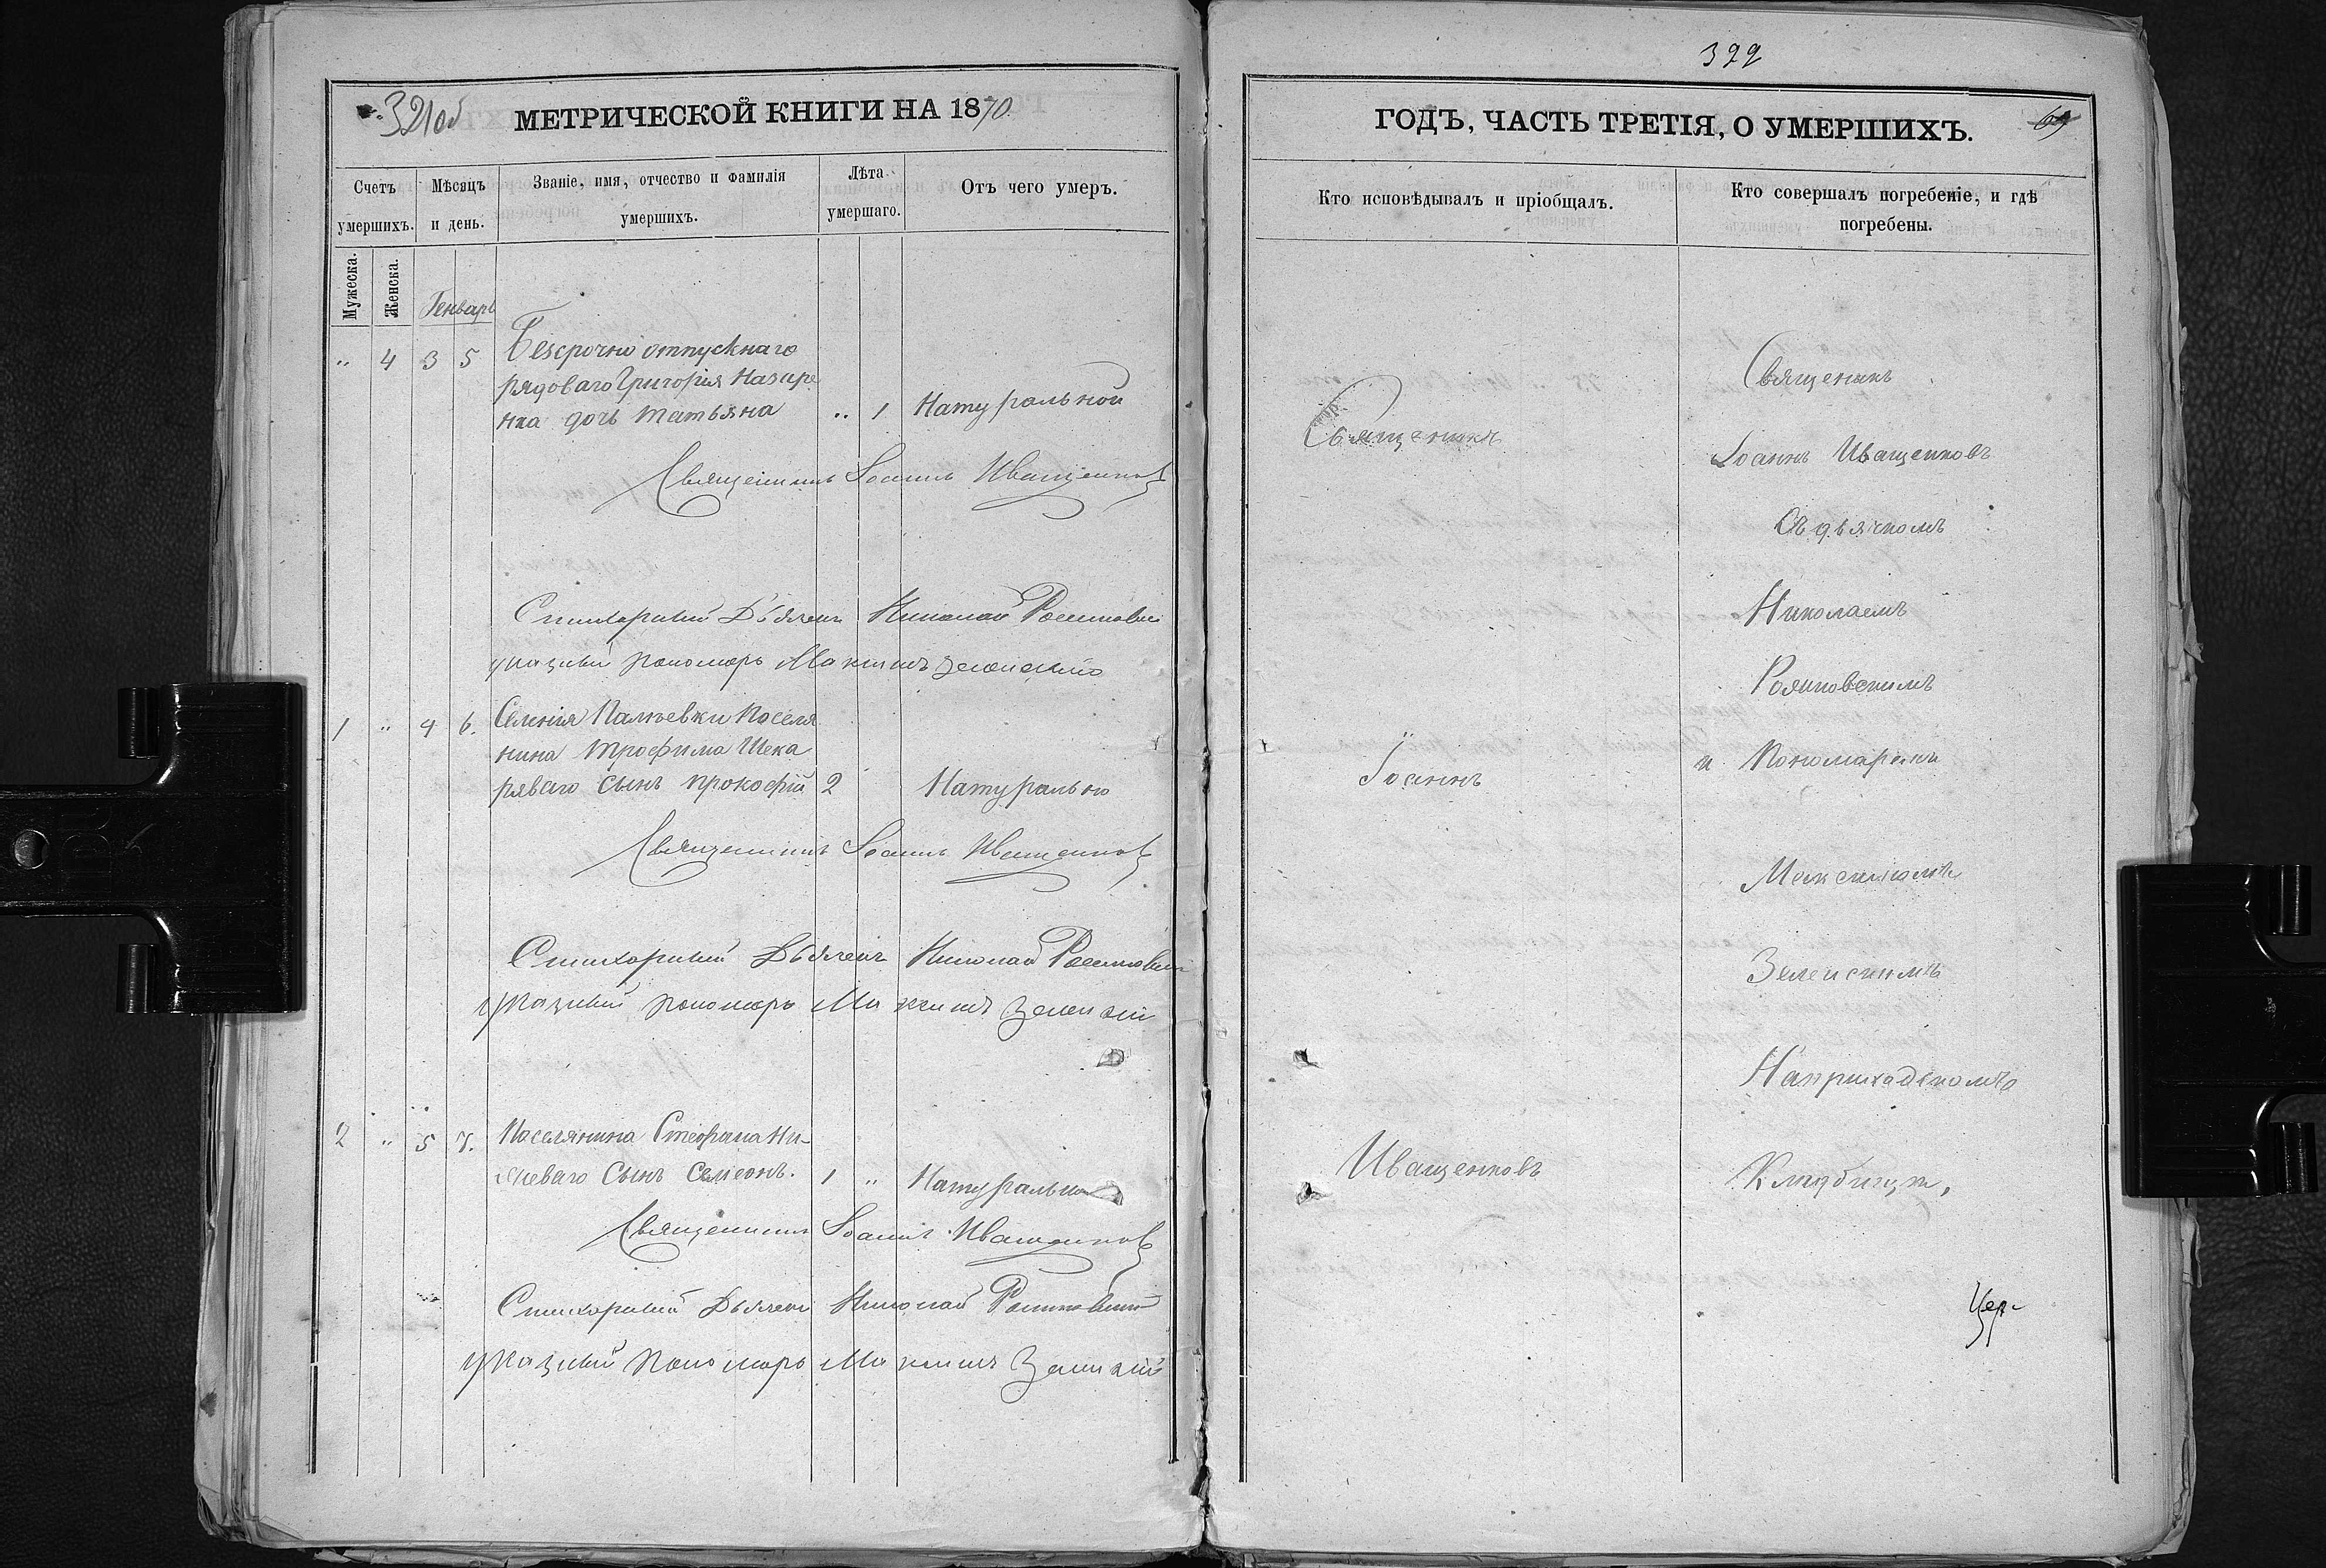 321об
МЕТРИЧЕСКОЙ КНИГИ НА 1870.
Счетъ умершихъ.
Мѣсяцъ и день.
Званіе, имя, отчество и фамилія умершихъ.
Лѣта умершаго.
Отъ чего умеръ.
Мужеска.
Женска.
Генварь
" 4 3 5 Безсрочно отпускнаго
рядоваго Григорія Назаре
нка дочь Татьяна .. 1 Натуральной
Священникъ Іоаннъ Иващенковъ
Стихарный Дьячекъ Николай
указный пономарь Максимъ Зеленскій
1 " 4 6. Селенія Палѣевки Поселя
нина Трофима Шека
ряваго сынъ Прокофій 2 Натурально
Священникъ Іоаннъ Иващенковъ
Стихарный Дьячекъ Николай
указный пономарь Максимъ Зеленскій
2 " 5 7. Поселянина Стефана Ни-
сынъ Симеонъ. 1 " Натурально
Священникъ Іоаннъ Иващенковъ
Стихарный Дьячекъ Николай
указный пономарь Максимъ Зеленскій
322
ГОДЪ, ЧАСТЬ ТРЕТІЯ, О УМЕРШИХЪ.
69
Кто исповѣдывалъ и пріобщалъ.
Кто совершалъ погребеніе, и гдѣ
погребены.
Священикъ
Іоаннъ
Иващенковъ
Священикъ
Іоаннъ Иващенковъ
Съ дьячкомъ
Николаемъ
и Пономаремъ
Максимомъ
Зеленскимъ
На приходскомъ
Кладбищѣ,
Чер-